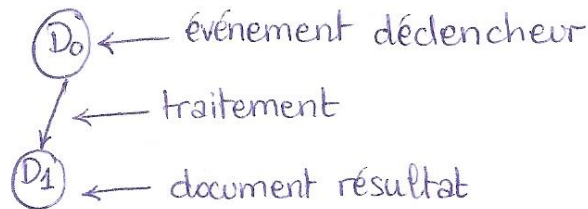 D0 ← événement déclencheur
← traitement
D1 ← document résultat